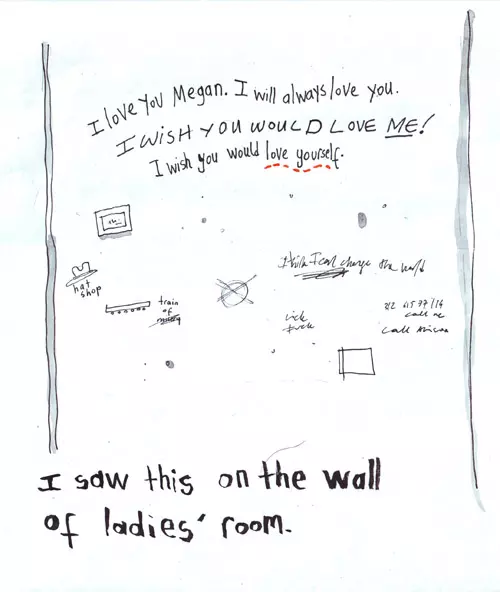 I love you Megan. I will always love you.
I WISH YOU WOULD LOVE ME!
I wish you would love yourself.
I think I can change the world
hat
shop
train
of
call me
call
I saw this on the wall
of ladies' room.